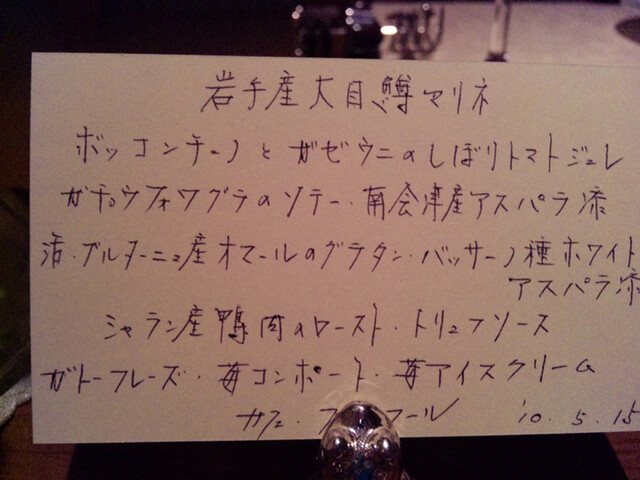 岩手産大目鱒マリネ
ボッコンチーノとガゼウニのしぼりトマトジュレ
ガチョウフォワグラのソテー・南会津産アスパラ添
活・ブルターニュ産オマールのグラタン・バッサーノ種ホワイト
アスパラ添
シャラン産鴨肉のロースト・トリュフソース
ガトーフレーズ・苺コンポート・苺アイスクリーム
カフェ・フ フール 10.5.15